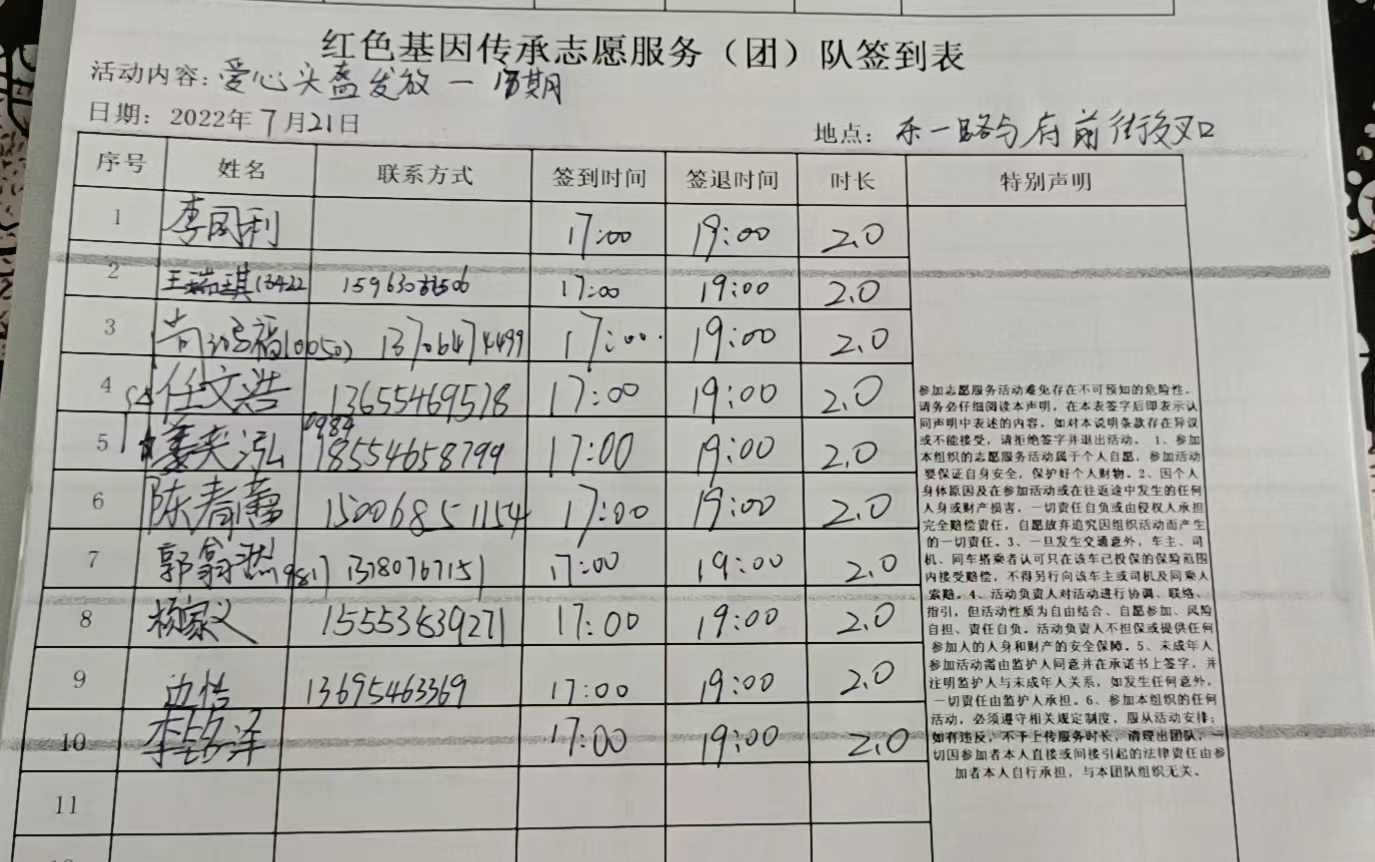 红色基因传承志愿服务（团）队签到表
活动内容：爱心头盔发放一 期
日期：2022年7月21日
地点：东一路与府前街交叉口
序号 姓名 联系方式 签到时间 签退时间 时长 特别声明
1 李 利 17:00 19:00 2.0
2 王瑞琪13422 17:00 19:00 2.0
3 尚鸿福10050) 13706474499 17:00 19:00 2.0
4 任文浩 13655469578 17:00 19:00 2.0
0984
5 姜奕泓 18554658799 17:00 19:00 2.0
6 陈春 15006851154 17:00 19:00 2.0
7 郭 然1981) 13780767151 17:00 19:00 2.0
8 杨家义 17:00 19:00 2.0
9 边怡 13695463369 17:00 19:00 2.0
10 李 泽 17:00 19:00 2.0
11
参加志愿服务活动难免存在不可预知的危险性，
请务必仔细阅读本声明，在本表签字后即表示认
同声明中表述的内容。如对本说明条款存在异议
或不能接受，请拒绝签字并退出活动。 1、参加
本组织的志愿服务活动属于个人自愿，参加活动
要保证自身安全，保护好个人财物。2、因个人
身体原因及在参加活动或在往返途中发生的任何
人身或财产损害，一切责任自负或由侵权人承担
完全赔偿责任，自愿放弃追究因组织活动而产生
的一切责任。3、一旦发生交通意外，车主、司
机、同车搭乘者认可只在该车已投保的保险范围
内接受赔偿，不得另行向该车主或司机及同乘人
索赔。4、活动负责人对活动进行协调、联络、
指引，但活动性质为自由结合、自愿参加、风险
自担、责任自负。活动负责人不担保或提供任何
参加人的人身和财产的安全保障。5、未成年人
参加活动需由监护人同意并在承诺书上签字，并
注明监护人与未成年人关系，如发生任何意外，
一切责任由监护人承担。6、参加本组织的任何
活动，必须遵守相关规定制度，服从活动安排；
如有违反，不予上传服务时长，请理出团队，一
切因参加者本人直接或间接引起的法律责任由参
加者本人自行承担，与本团队组织无关。